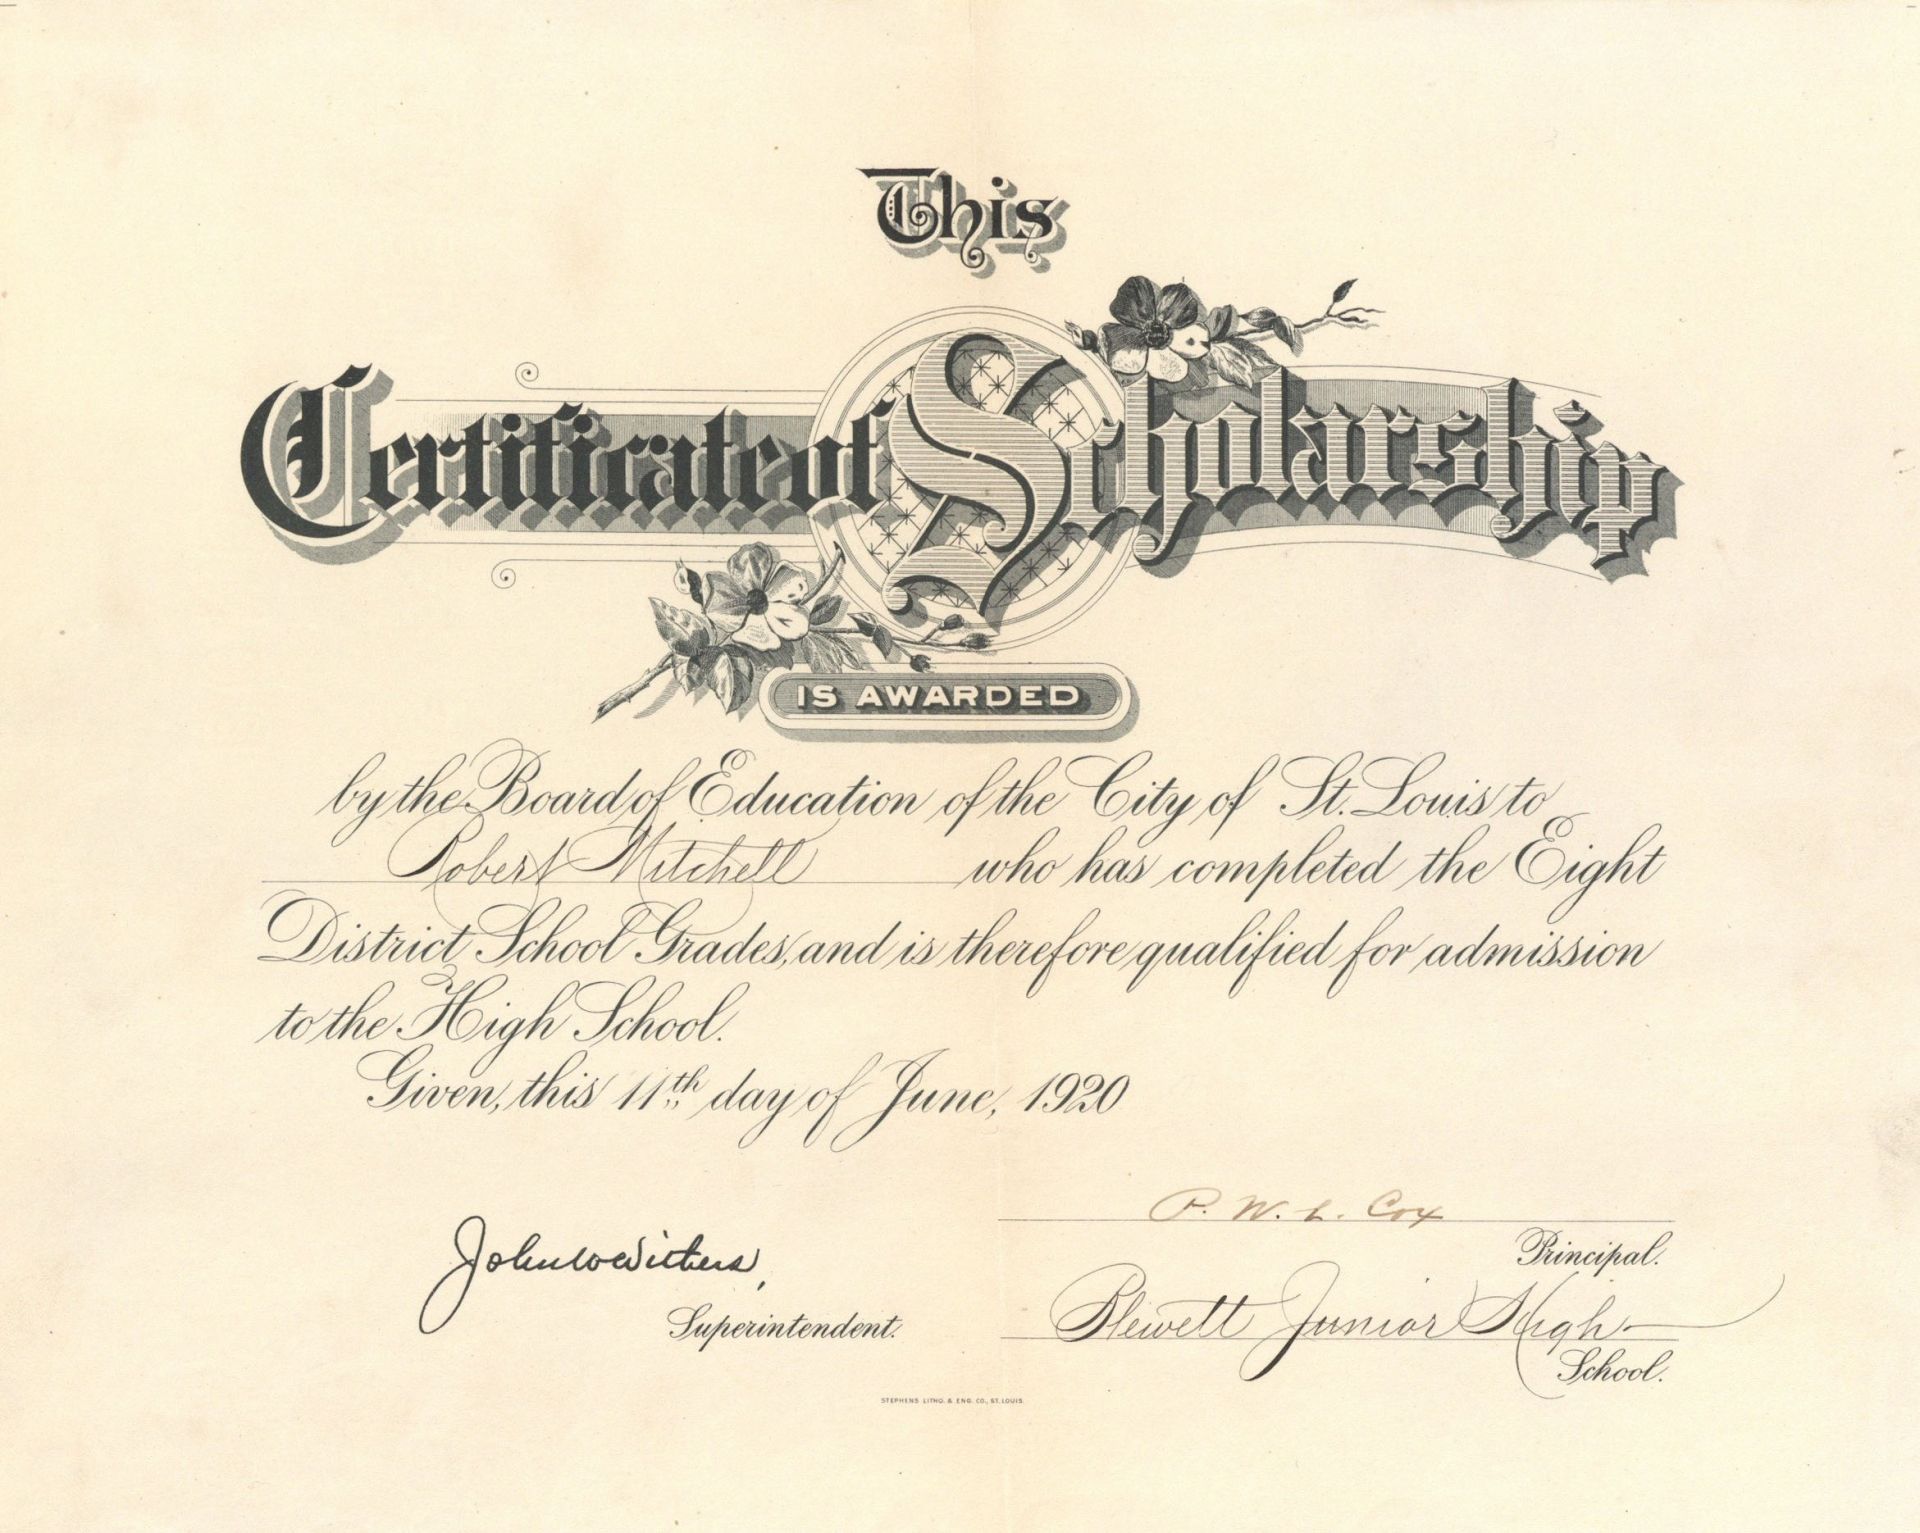 This
Certificate of Scholarship
IS AWARDED
by the Board of Education of the City of St. Louis to
Robert Mitchell who has completed the Eight
District School Grades, and is therefore qualified for admission
to the High School.
Given, this 11th day of June, 1920
P. W. L. Cox
Principal.
John W Withers,
Superintendent.
Blewett Junior High
School.
STEPHENS LITHO. & ENG. CO., ST. LOUIS.